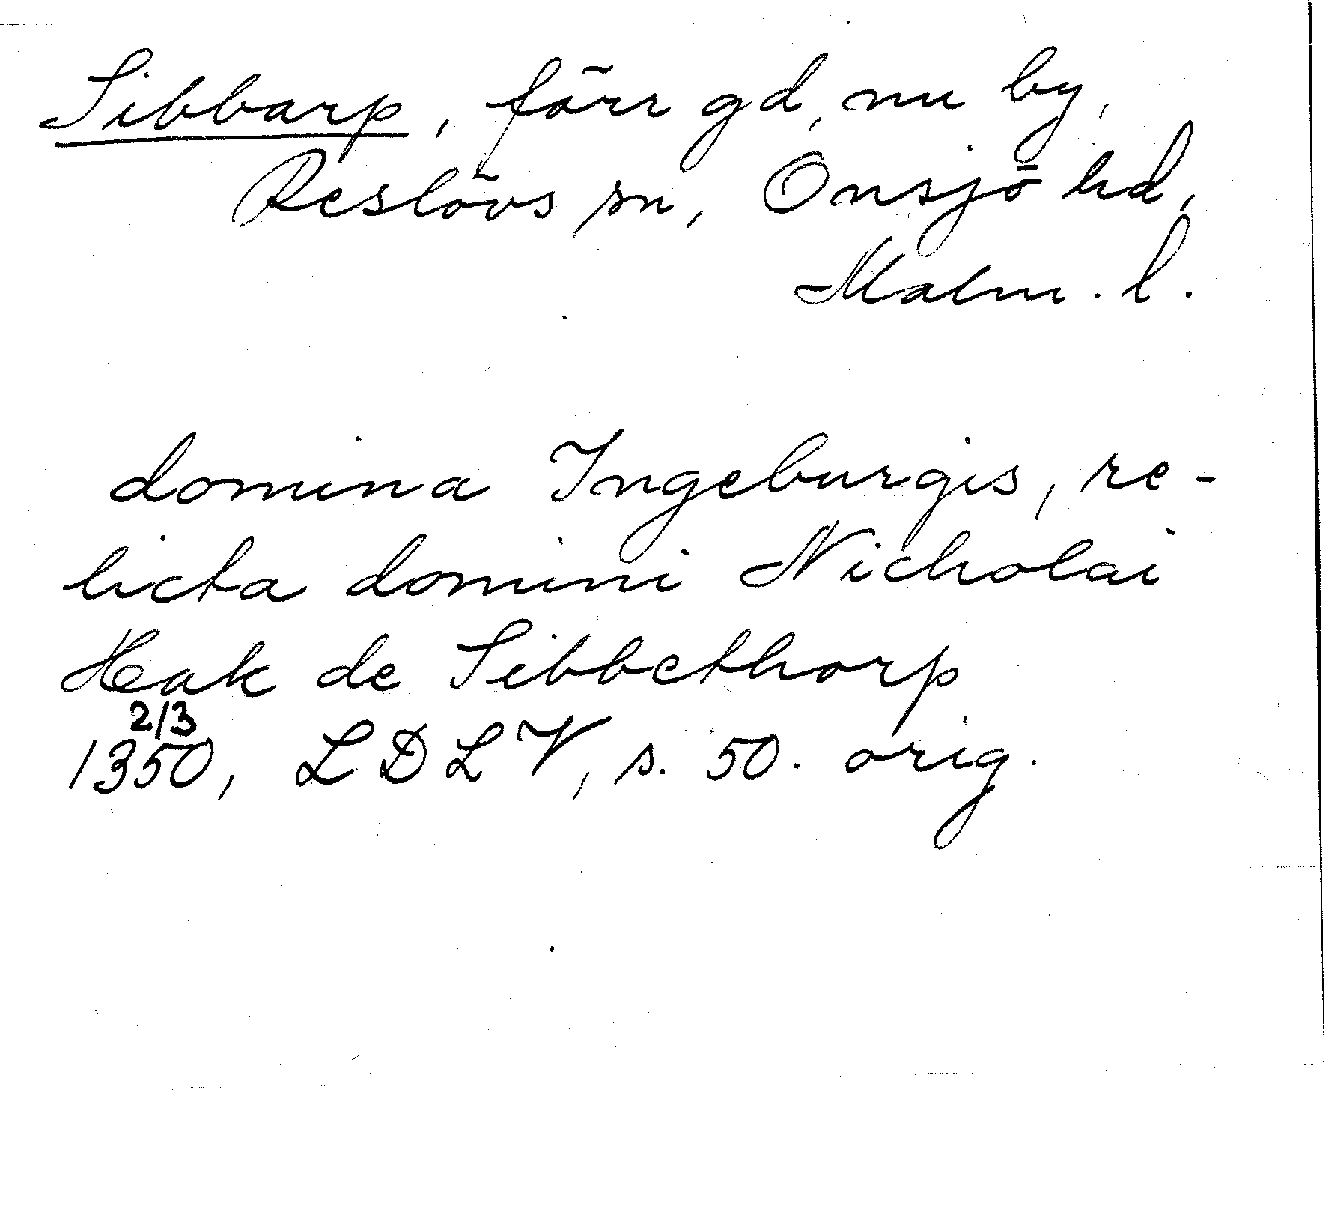 Sibbarp, förr gd, nu by,
Reslövs sn, Onsjö hd,
Malm. l.
domina Ingeburgis, re-
licta domini Nicholai
Hak de Sibbethorp
2/3
1350, LDLV, s. 50. orig.